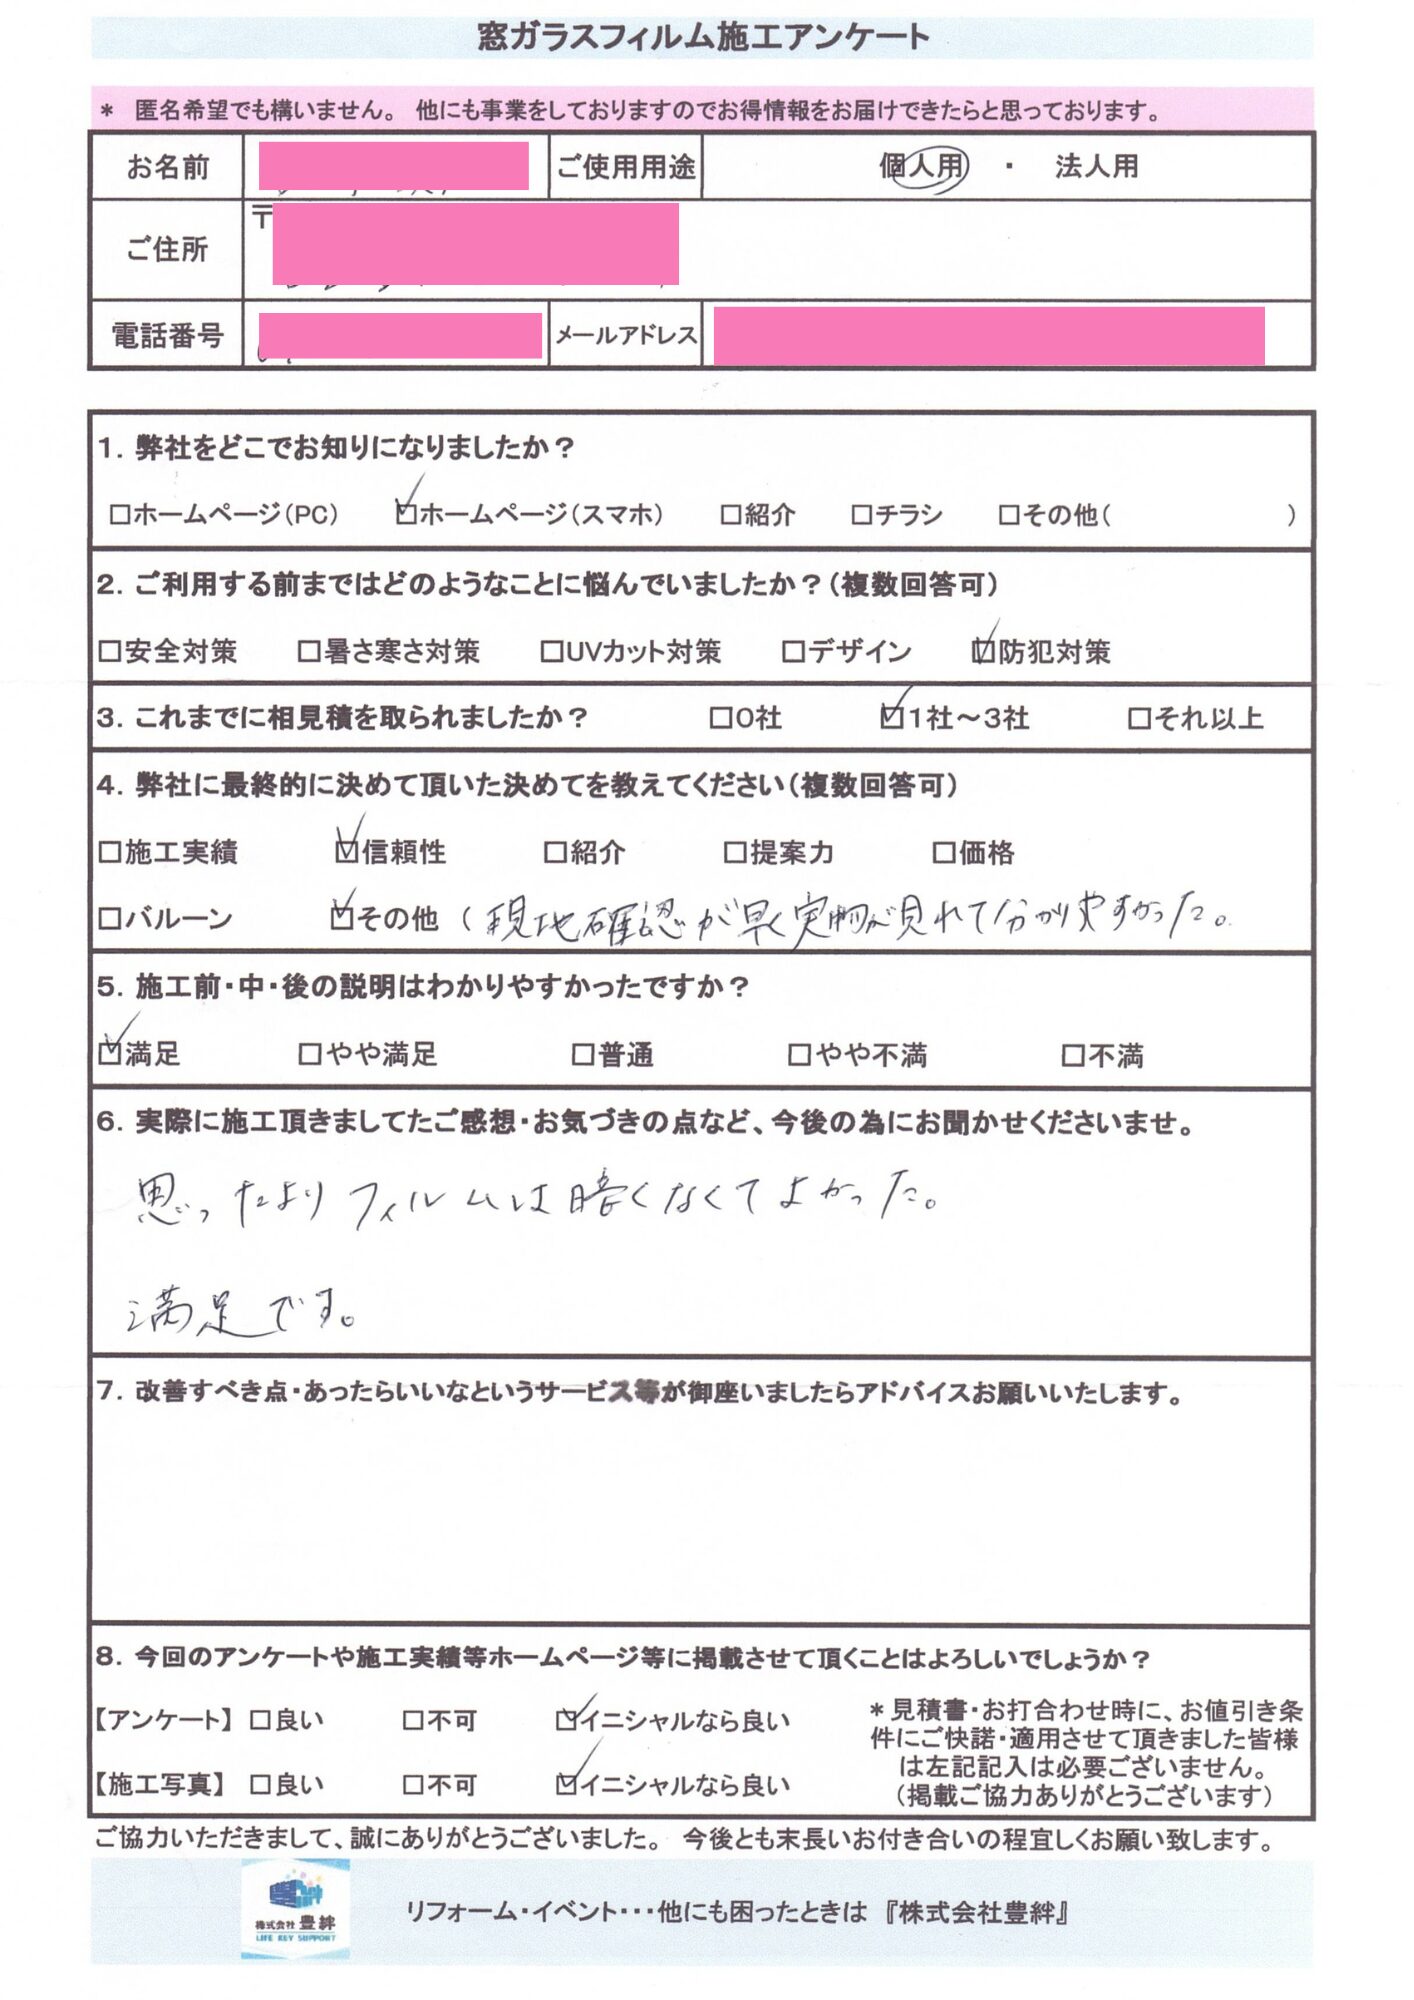 窓ガラスフィルム施工アンケート
* 匿名希望でも構いません。 他にも事業をしておりますのでお得情報をお届けできたらと思っております。
お名前 ご使用用途 個人用 ・ 法人用
ご住所 〒
電話番号 メールアドレス
1. 弊社をどこでお知りになりましたか?
□ホームページ(PC) ☑ホームページ(スマホ) □紹介 □チラシ □その他( )
2. ご利用する前まではどのようなことに悩んでいましたか?(複数回答可)
□安全対策 □暑さ寒さ対策 □UVカット対策 □デザイン ☑防犯対策
3. これまでに相見積を取られましたか? □0社 ☑1社~3社 □それ以上
4. 弊社に最終的に決めて頂いた決めてを教えてください(複数回答可)
□施工実績 ☑信頼性 □紹介 □提案力 □価格
□バルーン ☑その他 ( 現地確認が早く実物が見れて分かりやすかった。
5. 施工前・中・後の説明はわかりやすかったですか?
☑満足 □やや満足 □普通 □やや不満 □不満
6. 実際に施工頂きましてたご感想・お気づきの点など、今後の為にお聞かせくださいませ。
思ったよりフィルムは暗くなくてよかった。
満足です。
7. 改善すべき点・あったらいいなというサービス等が御座いましたらアドバイスお願いいたします。
8. 今回のアンケートや施工実績等ホームページ等に掲載させて頂くことはよろしいでしょうか?
【アンケート】 □良い □不可 ☑イニシャルなら良い
【施工写真】 □良い □不可 ☑イニシャルなら良い
*見積書・お打合わせ時に、お値引き条
件にご快諾・適用させて頂きました皆様
は左記記入は必要ございません。
(掲載ご協力ありがとうございます)
ご協力いただきまして、誠にありがとうございました。 今後とも末長いお付き合いの程宜しくお願い致します。
株式会社 豊絆
LIFE KEY SUPPORT
リフォーム・イベント・・・他にも困ったときは 『株式会社豊絆』